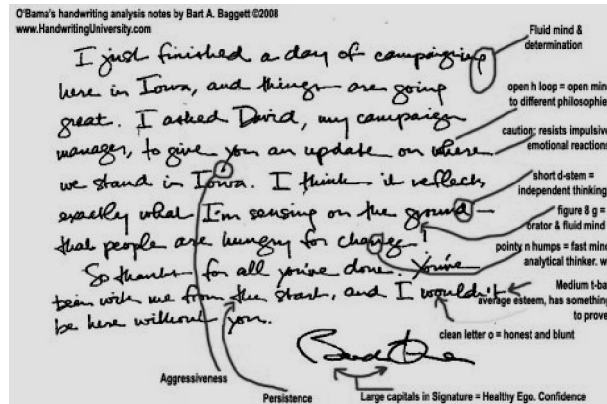 O'Bama's handwriting analysis notes by Bart A. Baggett ©2008
www.HandwritingUniversity.com
I just finished a day of campaigning
here in Iowa, and things are going
great. I asked David, my campaign
manager, to give you an update on where
we stand in Iowa. I think it reflects
exactly what I'm sensing on the ground —
that people are hungry for change!
So thanks for all you've done. You've
been with me from the start, and I wouldn't
be here without you.
Fluid mind &
determination
open h loop = open mind
to different philosophie
caution; resists impulsive
emotional reactions
short d-stem =
independent thinking
figure 8 g =
orator & fluid mind
pointy n humps = fast mind
analytical thinker. w
Medium t-ba
average esteem, has something
to prove
clean letter o = honest and blunt
Aggressiveness
Persistence
Large capitals in Signature = Healthy Ego. Confidence